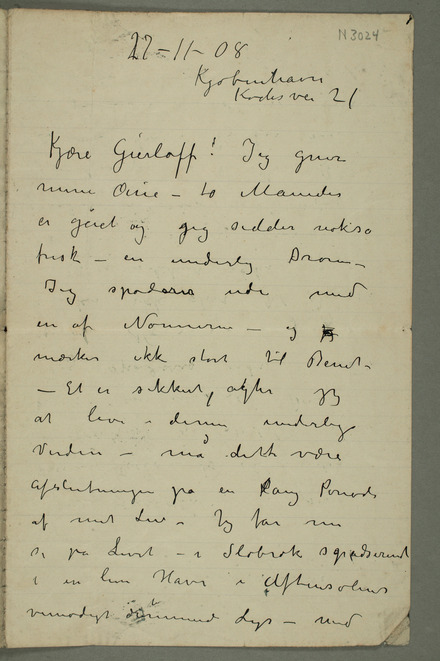 N3024
27-11-08
Kjøbenhavn
Kochsvei 21
Kjære Gierløff! Jeg gnir
mine Øine – to Måneder
er gået og jeg sidder nokså
frisk – en underlig Drøm –
Jeg spaserer ude med
en af Nonnerne – og
mærker ikke stort til Benet –
– Et er sikkert, efter
at leve i denne underlige
Verden – må dette være
afslutningen på en lang Periode
af mit Liv – Jeg får nu
se på Livet – i Slobrok spadserende
i en liten Have i Aftensolens
vemodigt drømmende Lys – med